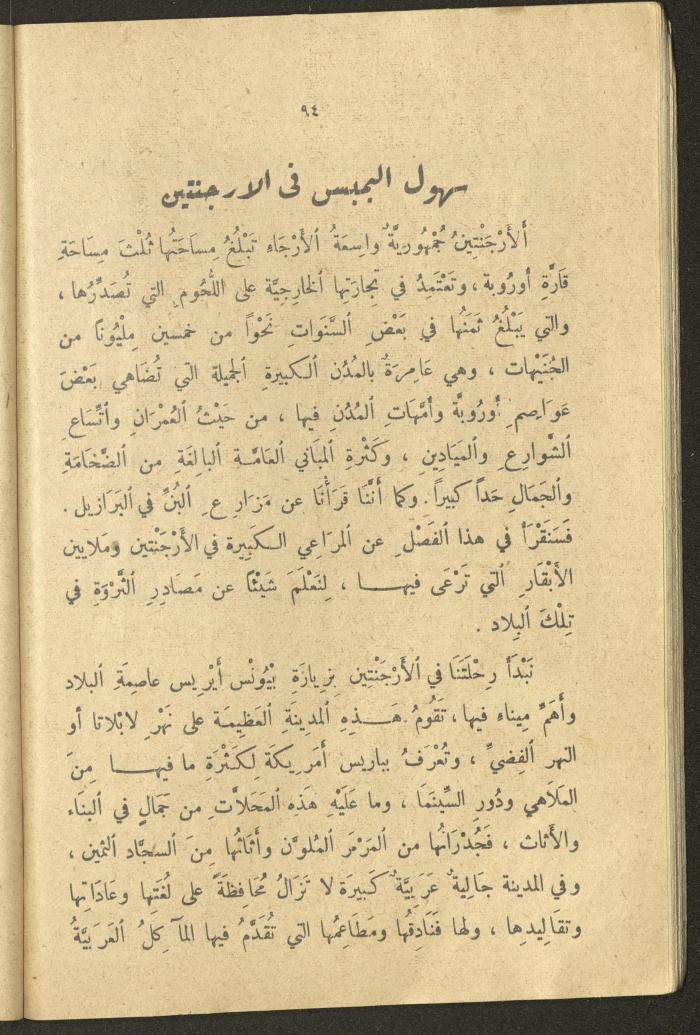 ٩٤
سهول البمبس فى الارجنتين
أَلأَرْجَنْتِينُ جُمْهُورِيَّةٌ واسِعَةُ ٱلأَرْجَاءِ تَبْلُغُ مِسَاحَتُها ثُلْثَ مِسَاحَةِ
قَارَّةِ أورُوبة ، وتَعْتَمِدُ في تِجارَتِها ٱلخارِجِيَّة على اللُّحُومِ التي تُصَدِّرُها ،
والتي يَبْلُغُ ثَمَنُها في بَعْضِ ٱلسَّنَواتِ نَحْواً من خمسين مِلْيُونًا من
الجُنَيْهات ، وهي عَامِرَةٌ بالمُدُن ٱلكبيرةِ ٱلجميلة التي تُضَاهي بَعْضَ
عَوَاصِمِ أورُوبَّة وأمَّهَاتِ ٱلمُدُنِ فيها ، من حَيْثُ ٱلعُمْرَانِ وٱتِّسَاعِ
ٱلشَّوارِعِ وٱلميَادِينِ ، وكَثْرةِ ٱلمبَاني ٱلعَامَّةِ ٱلبالِغَةِ من ٱلضَّخَامَةِ
وٱلجَمَالِ حَداً كبيراً . وكما أنَّنَا قَرَأْنَا عن مَزَارِعِ ٱلبُنِّ في ٱلبَرَازيل .
فَسَنَقْرَأُ في هذا ٱلفَصْلِ عن ٱلمرَاعي ٱلكَبِيرة في ٱلأَرْجَنْتين ومَلايين
الأَبْقَارِ ٱلتي تَرْعَى فيها ، لِنَعْلَمَ شَيْئًا عن مَصَادِرِ ٱلثَّرْوَةِ في
تِلْكَ ٱلبِلاد .
نَبْدَأُ رِحْلَتَنَا في ٱلأَرْجَنْتِين بِزِيارَةِ بْيُونْس أَيْرِيس عاصِمَةِ ٱلبلاد
وأَهَمِّ مِيناءٍ فيها ، تَقُومُ هَذِهِ ٱلمدينَةِ ٱلعَظِيمَة على نَهْرِ لابْلاتا أو
النهر ٱلفِضيِّ ، وتُعْرَفُ بباريس أَمْرِيكَةَ لِكَثْرَةِ ما فيها مِنَ
المَلَاهي ودُورِ ٱلسِّينَمَا ، وما عَلَيْهِ هَذه ٱلمَحَلاَّتِ من جَمَالٍ في ٱلبنَاء
والأَثاث ، فَجُدْرَانُها من ٱلمَرْمَرِ ٱلمُلوَّن وأَثَاثُها مِنَ ٱلسجَّاد ٱلثمين ،
وفي المدينة جَالِيةٌ عَرَبِيَّةٌ كَبيرَة لا تَزَالُ مُحَافِظَةً على لُغَتِها وعَادَاتِها
وتقَالِيدِها ، ولها فَنَادِقُها ومَطَاعِمُها التي تُقَدَّمُ فيها المآكِلُ ٱلعَرَبِيَّةُ